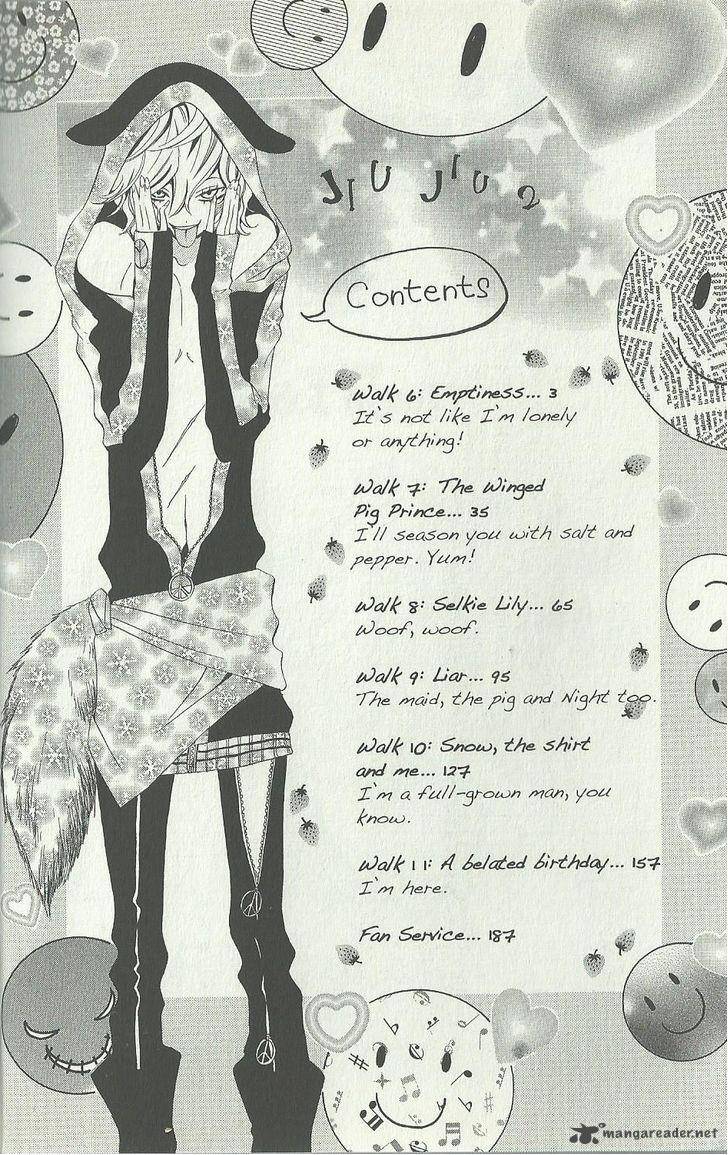 JIU JIU 2
Contents
Walk 6: Emptiness... 3
It's not like I'm lonely
or anything!
Walk 7: The Winged
Pig Prince... 35
I'll season you with salt and
pepper. Yum!
Walk 8: Selkie Lily... 65
Woof, woof.
Walk 9: Liar... 95
The maid, the pig and Night too.
Walk 10: Snow, the shirt
and me... 127
I'm a full-grown man, you
know.
Walk 11: A belated birthday... 157
I'm here.
Fan Service... 187
mangareader.net